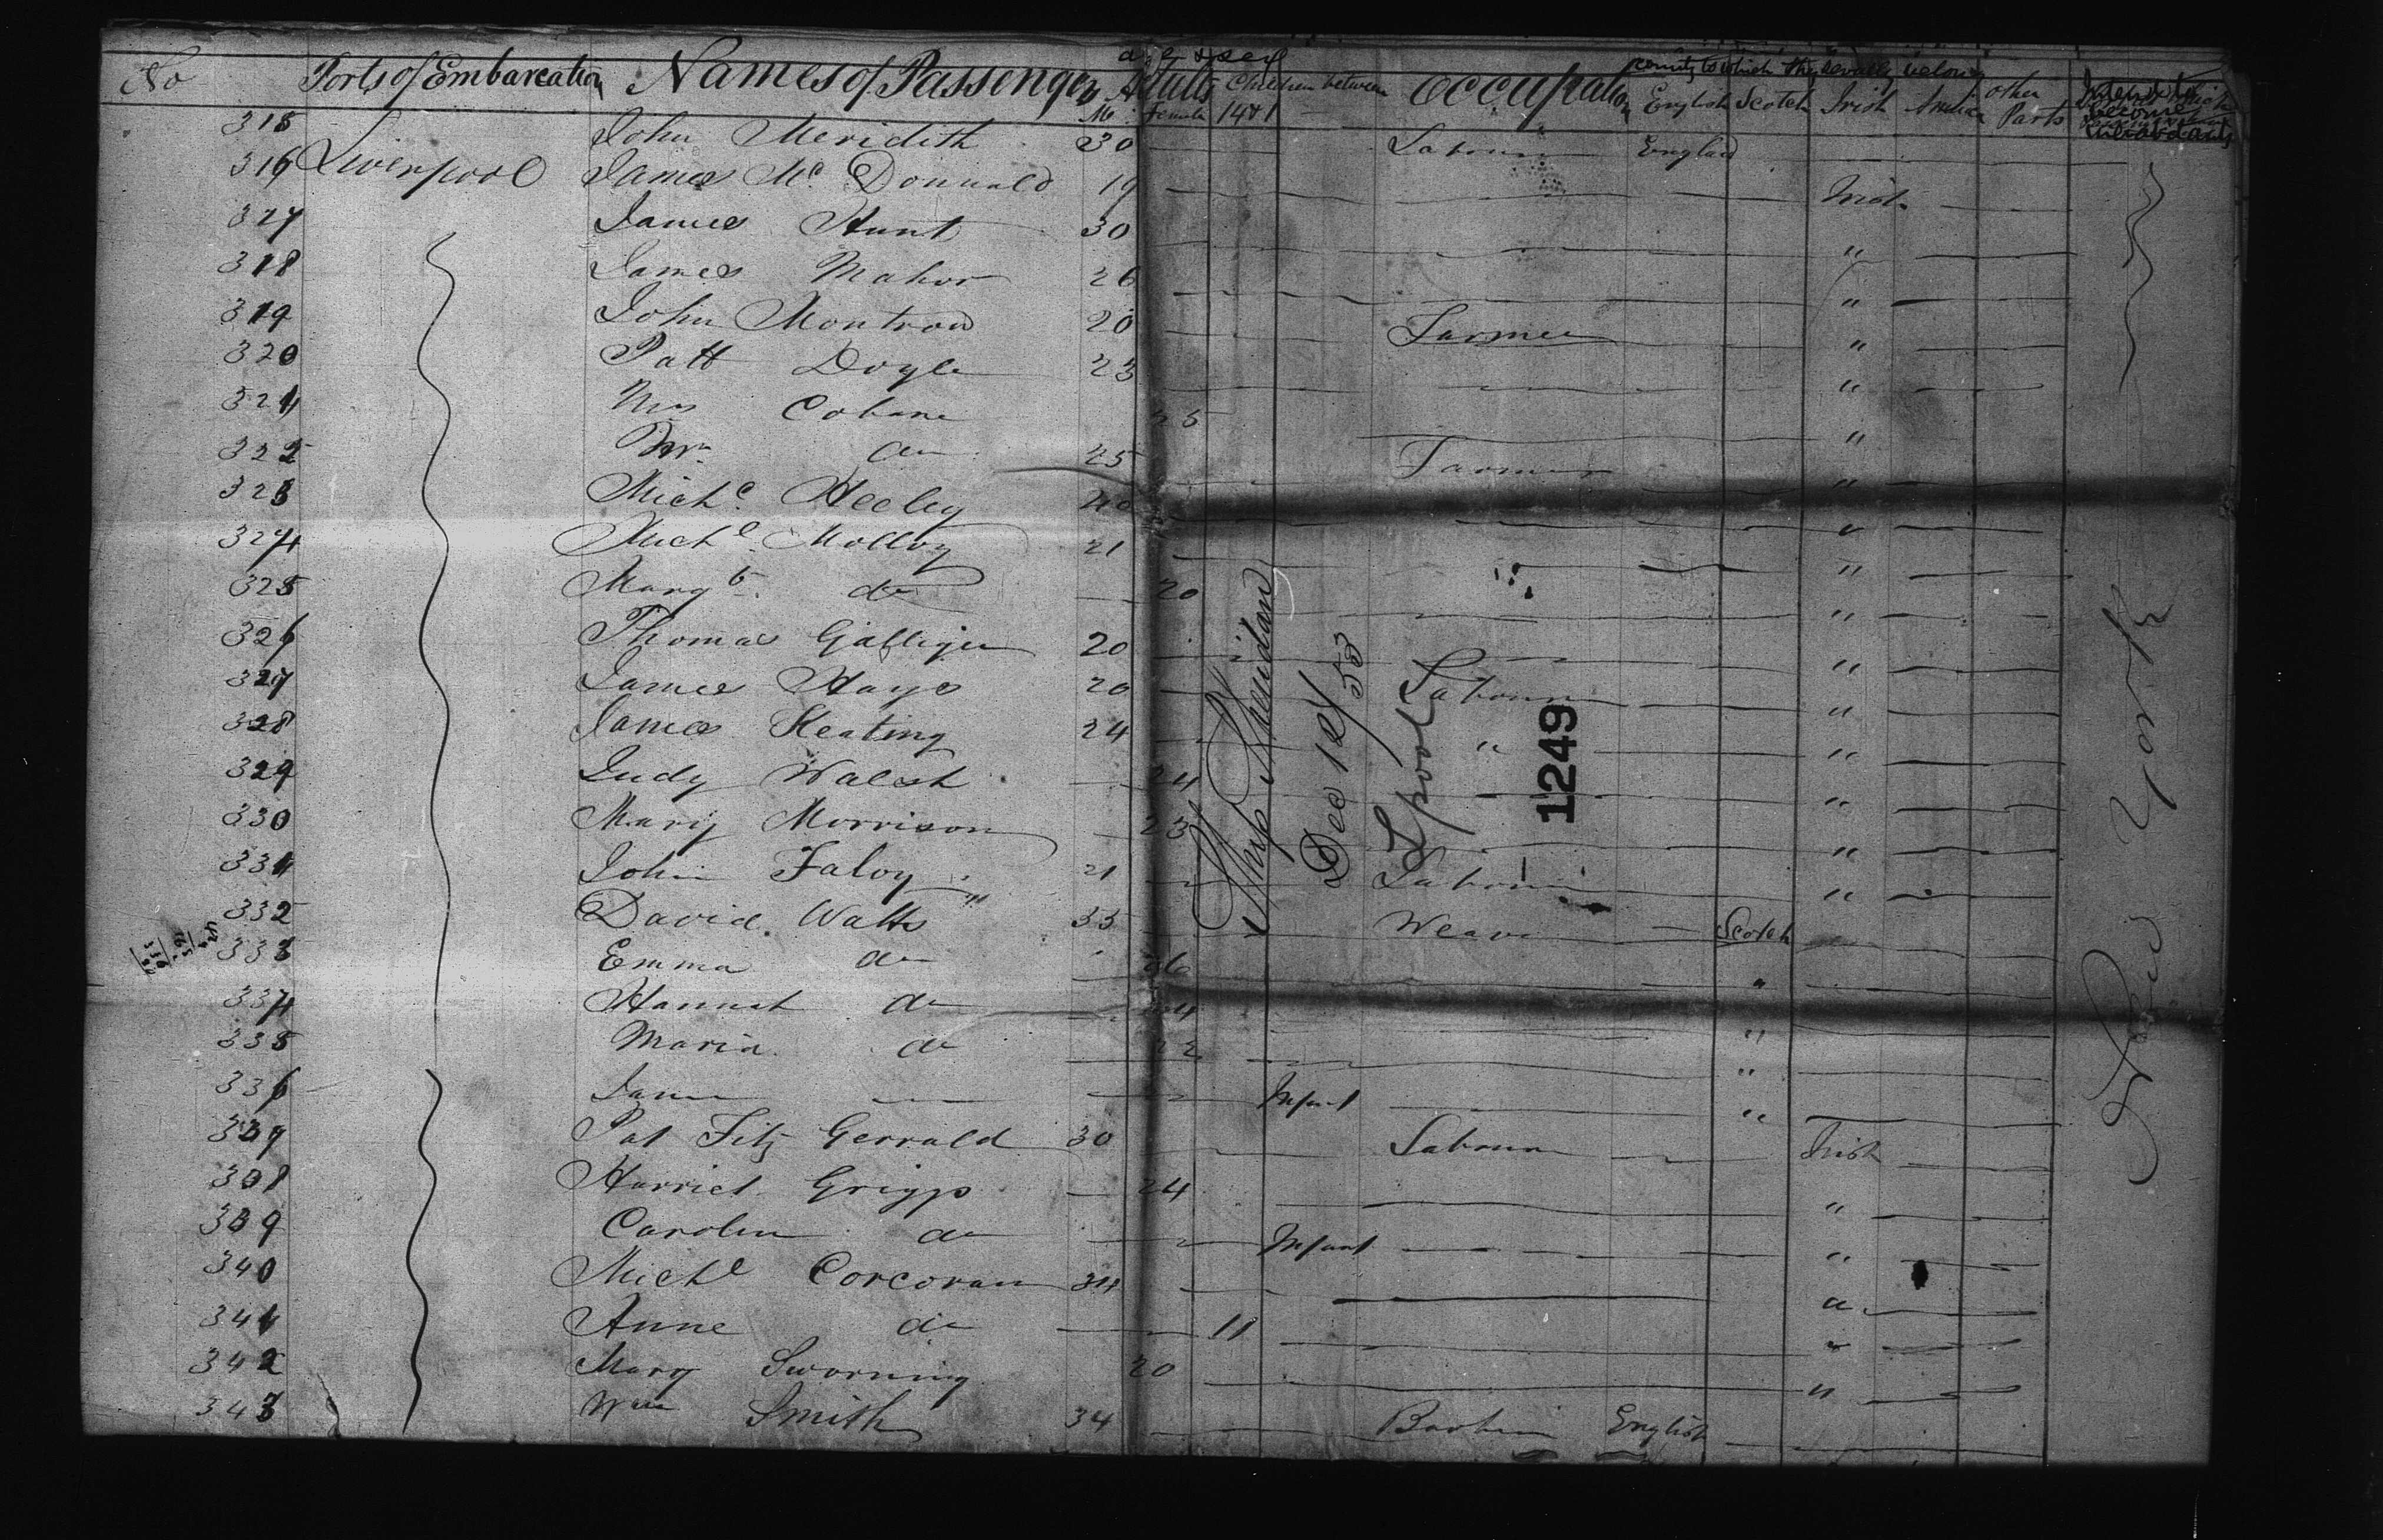 No Ports of Embarcation Names of Passenger Adults Children between Occupation English Scotch Irish other Parts
M Female 14 & 1
315 John Meridith 30 Labour England
316 Liverpool James Mc Donnald 19 Irish
327 James Hunt 30 "
318 James Mahor 26 "
319 John Montrow 20 Farmer "
320 Patt Doyle 23 "
321 Mrs Cobane 25 "
322 Wm do 25 Farmer "
323 Michl Heeley 40 "
324 Michl Molloy 21 "
325 Margt do 20 "
326 Thomas Galligan 20 "
327 James Hays 20 Labour "
328 James Keating 24 " "
329 Judy Walsh 24 "
330 Mary Morrison 23 "
331 John Faloy 21 Labour "
332 David Watts 33 Weaver Scotch
333 Emma do 36 "
334 Hannah do "
335 Maria do 22 "
336 Jane Infant "
337 Pat Fitz Gerrald 30 Labour Irish
338 Harriet Griggs 24 "
339 Carolin do Infant "
340 Michl Corcoran 34 "
341 Anne do 11 "
342 Mary Sworning 20 "
343 Wm Smith 34 English
Ship Sheridan
Dec 12/53
L pool
1249
New York